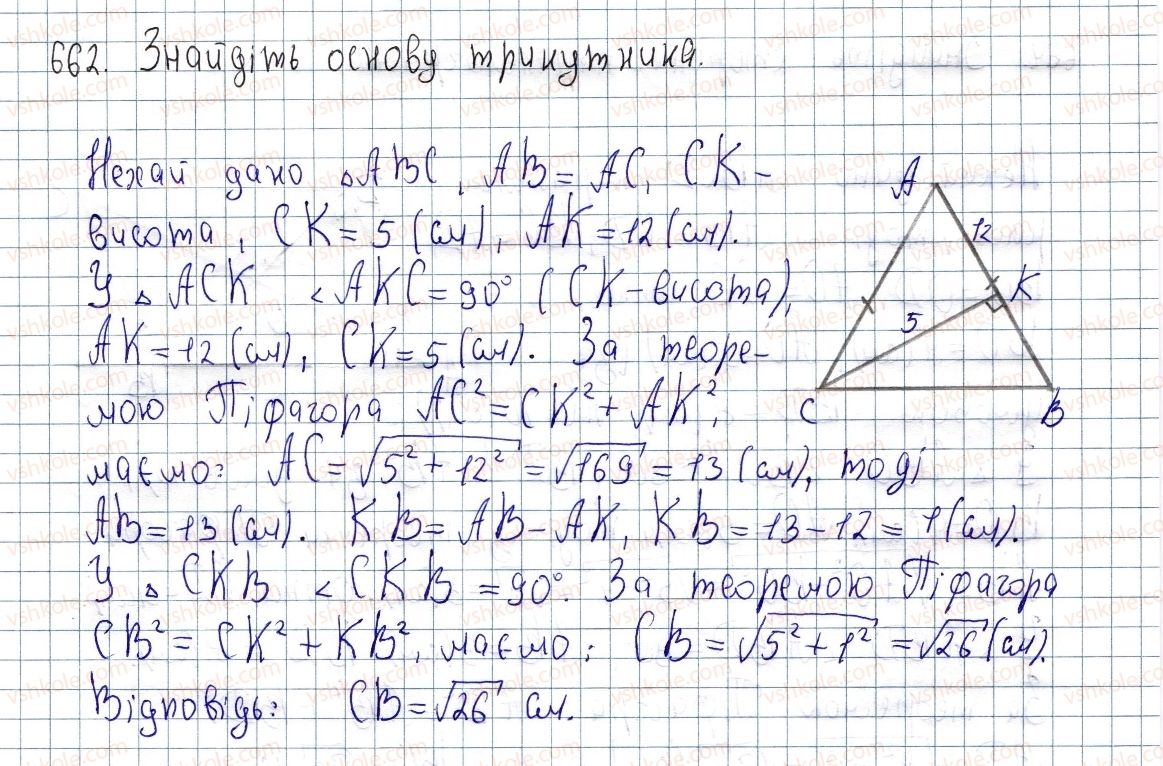 662. Знайдіть основу трикутника.
Нехай дано △ABC, AB = AC, CK –
висота, CK = 5 (см), AK = 12 (см).
У △ ACK ∠AKC = 90° (CK – висота),
AK = 12 (см), CK = 5 (см). За теоре–
мою Піфагора AC² = CK² + AK²,
маємо: AC = √(5² + 12²) = √169 = 13 (см), тоді
AB = 13 (см). KB = AB – AK, KB = 13 – 12 = 1 (см).
У △ CKB ∠CKB = 90°. За теоремою Піфагора
CB² = CK² + KB², маємо: CB = √(5² + 1²) = √26 (см).
Відповідь: CB = √26 см.
A
12
K
5
C
B
vshkole.com